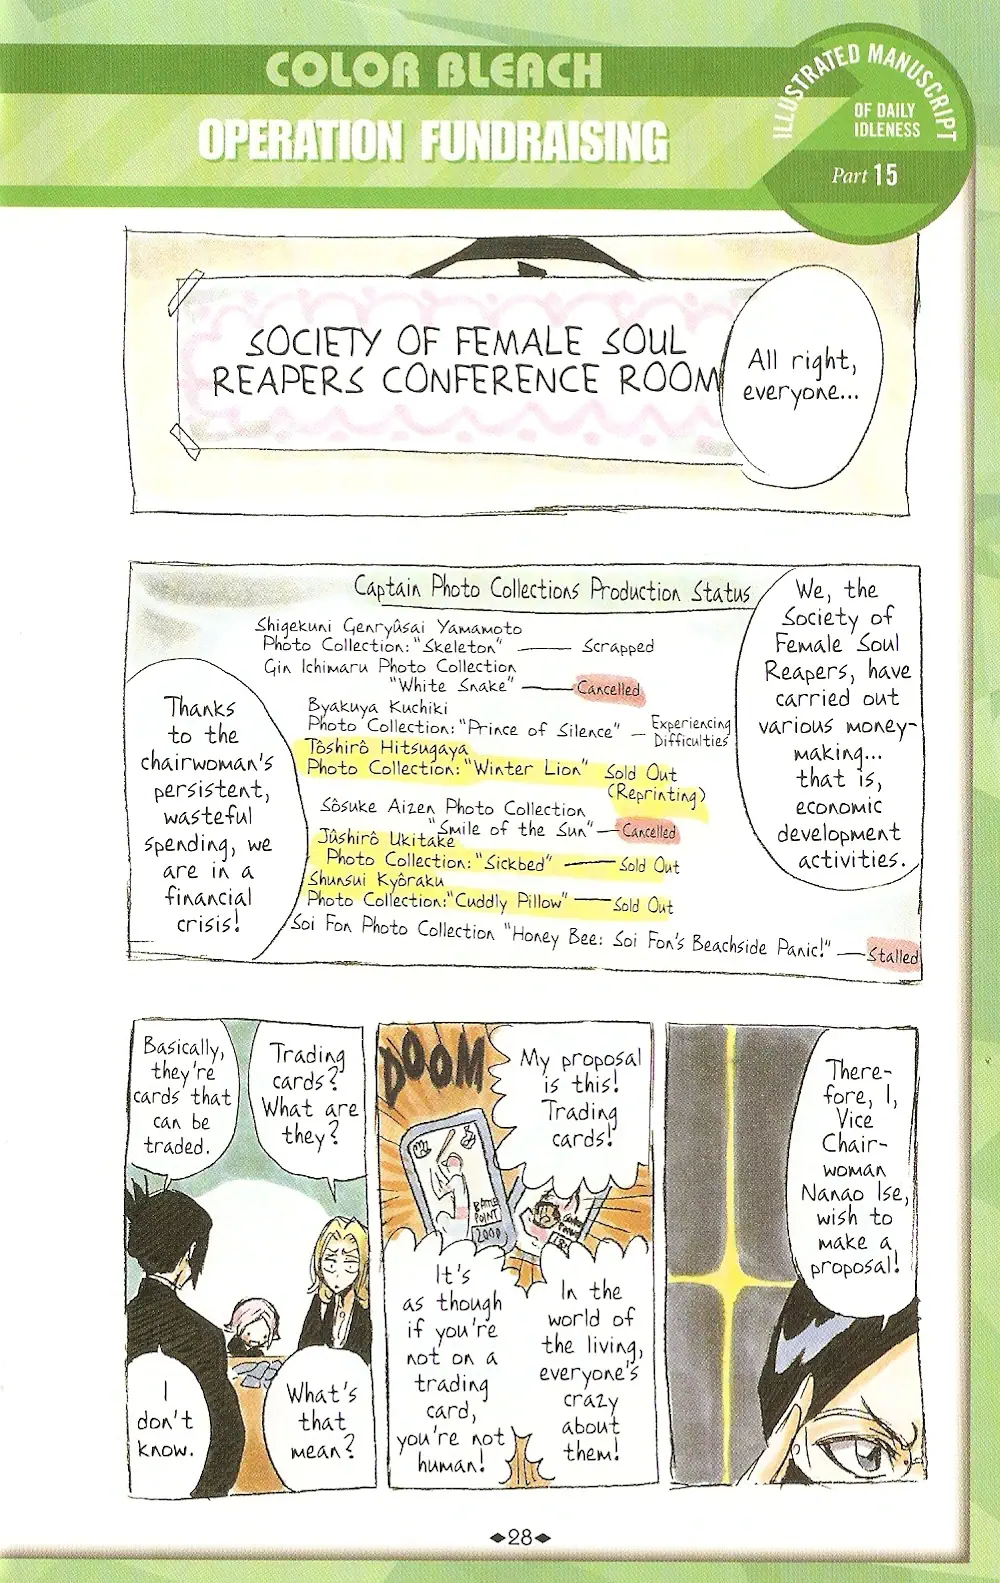 COLOR BLEACH
OPERATION FUNDRAISING
ILLUSTRATED MANUSCRIPT
OF DAILY
IDLENESS
Part 15
SOCIETY OF FEMALE SOUL
REAPERS CONFERENCE ROOM
All right,
everyone...
Captain Photo Collections Production Status
Shigekuni Genryûsai Yamamoto
Photo Collection: "Skeleton" — Scrapped
Gin Ichimaru Photo Collection
"White Snake" — Cancelled
Byakuya Kuchiki
Photo Collection: "Prince of Silence" — Experiencing
Difficulties
Tôshirô Hitsugaya
Photo Collection: "Winter Lion" Sold Out
(Reprinting)
Sôsuke Aizen Photo Collection
"Smile of the Sun" — Cancelled
Jûshirô Ukitake
Photo Collection: "Sickbed" — Sold Out
Shunsui Kyôraku
Photo Collection: "Cuddly Pillow" — Sold Out
Soi Fon Photo Collection "Honey Bee: Soi Fon's Beachside Panic!" — Stalled
We, the
Society of
Female Soul
Reapers, have
carried out
various money-
making...
that is,
economic
development
activities.
Thanks
to the
chairwoman's
persistent,
wasteful
spending, we
are in a
financial
crisis!
There-
fore, I,
Vice
Chair-
woman
Nanao Ise,
wish to
make a
proposal!
DOOM
My proposal
is this!
Trading
cards!
BATTLE
POINT
200P
In the
world of
the living,
everyone's
crazy
about
them!
It's
as though
if you're
not on a
trading
card,
you're not
human!
Trading
cards?
What are
they?
Basically,
they're
cards that
can be
traded.
What's
that
mean?
I
don't
know.
28